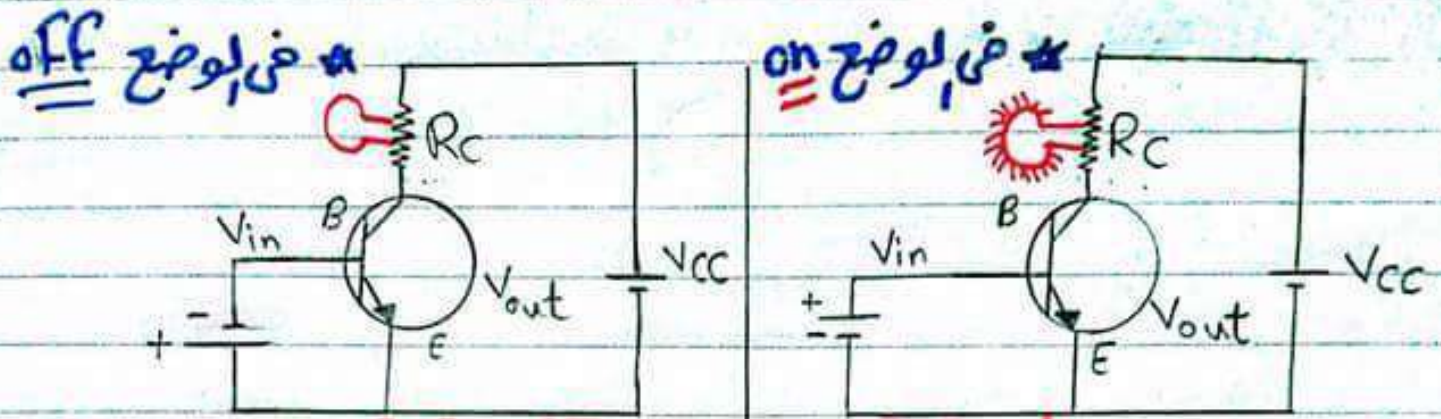 * في الوضع off
Rc
B
Vin
Vout
Vcc
E
+
-
* في الوضع on
Rc
B
Vin
Vout
Vcc
E
+
-